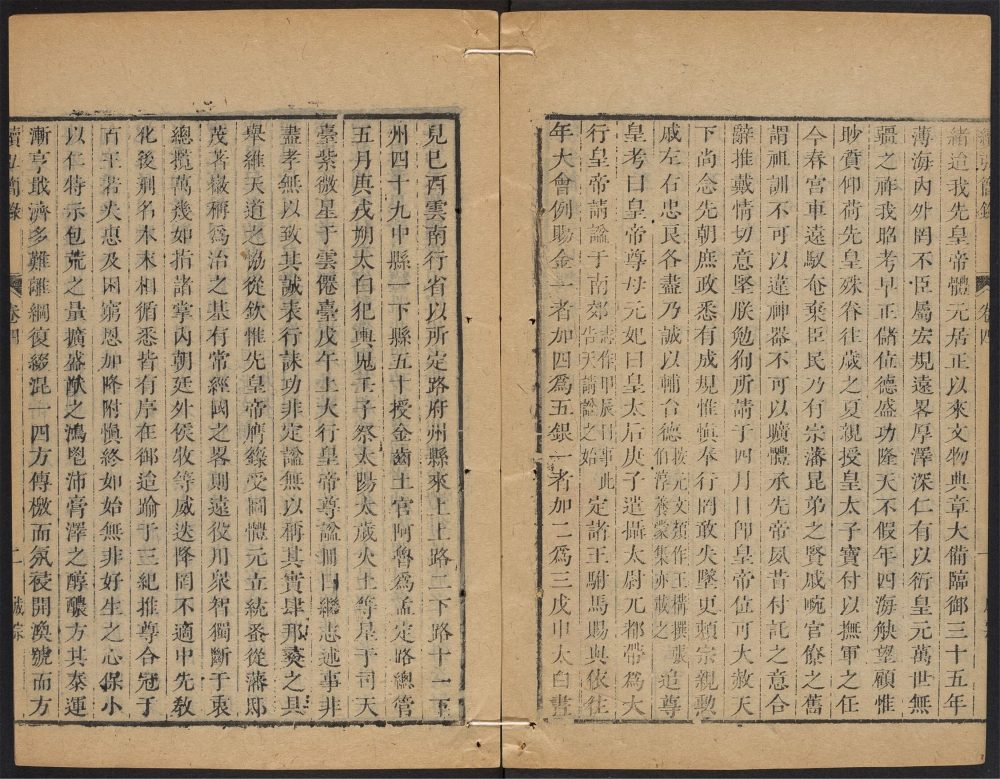 緒迨我先皇帝體元居正以來文物典章大備臨御三十五年
薄海內外罔不臣屬宏規遠畧厚澤深仁有以衍皇元萬世無
疆之祚我昭考早正儲位德盛功隆天不假年四海觖望顧惟
眇質仰荷先皇殊眷往歲之夏親授皇太子寶付以撫軍之任
今春宮車遠馭奄棄臣民乃有宗藩昆弟之賢戚畹官僚之舊
謂祖訓不可以違神器不可以曠體承先帝夙昔付託之意合
辭推戴情切意堅朕勉狥所請于四月日卽皇帝位可大赦天
下尚念先朝庶政悉有成規惟愼奉行罔敢失墜更賴宗親勲
戚左右忠良各盡乃誠以輔台德按元文類作王構撰張伯淳養蒙集亦載之追尊
皇考曰皇帝尊母元妃曰皇太后庚子遣攝太尉兀都帶爲大
行皇帝請諡于南郊志作甲辰日事此告天請諡之始定諸王駙馬賜與依往
年大會例賜金一者加四爲五銀一者加二爲三戊申太白晝
見巳酉雲南行省以所定路府州縣來上上路二下路十一下
州四十九中縣一下縣五十授金齒土官阿魯爲孟定路總管
五月庚戌朔太白犯輿鬼壬子祭太陽太歲火土等星于司天
臺紫微星于雲僊臺戊午上大行皇帝尊諡冊曰繼志述事非
盡孝無以致其誠表行誄功非定諡無以稱其實肆那菱之具
舉維天道之協從欽惟先皇帝膺籙受圖體元立統番從藩邸
茂著徽稱爲治之基有常經國之畧期遠役用衆智獨斷于衷
總攬萬幾如指諸掌內朝廷外侯牧等威迭降罔不適中先敎
化後刑名本末相循悉皆有序在御迨踰于三紀推尊合冠于
百王若夫惠及困窮恩加降附愼終如始無非好生之心保小
以仁特示包荒之量擴盛猷之鴻鬯沛膏澤之醇醲方其泰運
漸亨戢濟多難離綱復綴混一四方傳檄而氛祲開渙號而方
續弘簡錄
卷四
二